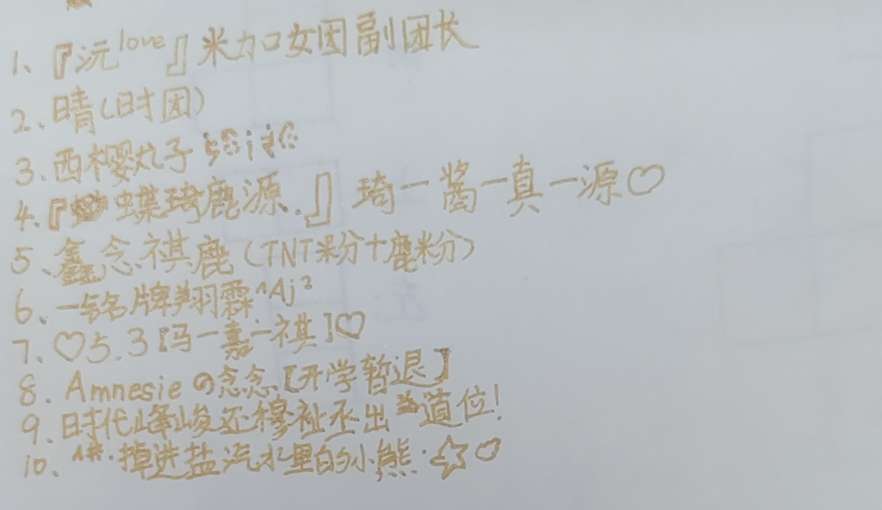 1、『沅love』米加女团副团长
2、晴(时团)
3、西樱丸子
4、『蝶琦鹿源.』琦一酱一真一源♡
5、鑫念祺鹿(TNT米分+鹿粉)
6、一铭牌翔霖^Aj²
7、♡5.3【冯一嘉一祺】♡
8. Amnesieの念念【开学暂退】
9、时代峰峻还穆祉丞出道位!
10、掉进盐汽水里的小熊·☆♡